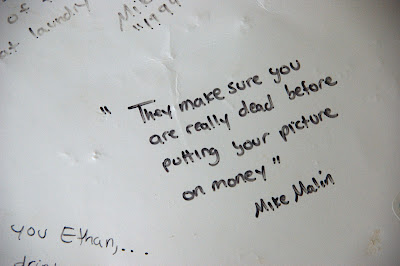 of
at laundry
Mike
"1994
" They make sure you
are really dead before
putting your picture
on money"
Mike Malin
you Ethan,...